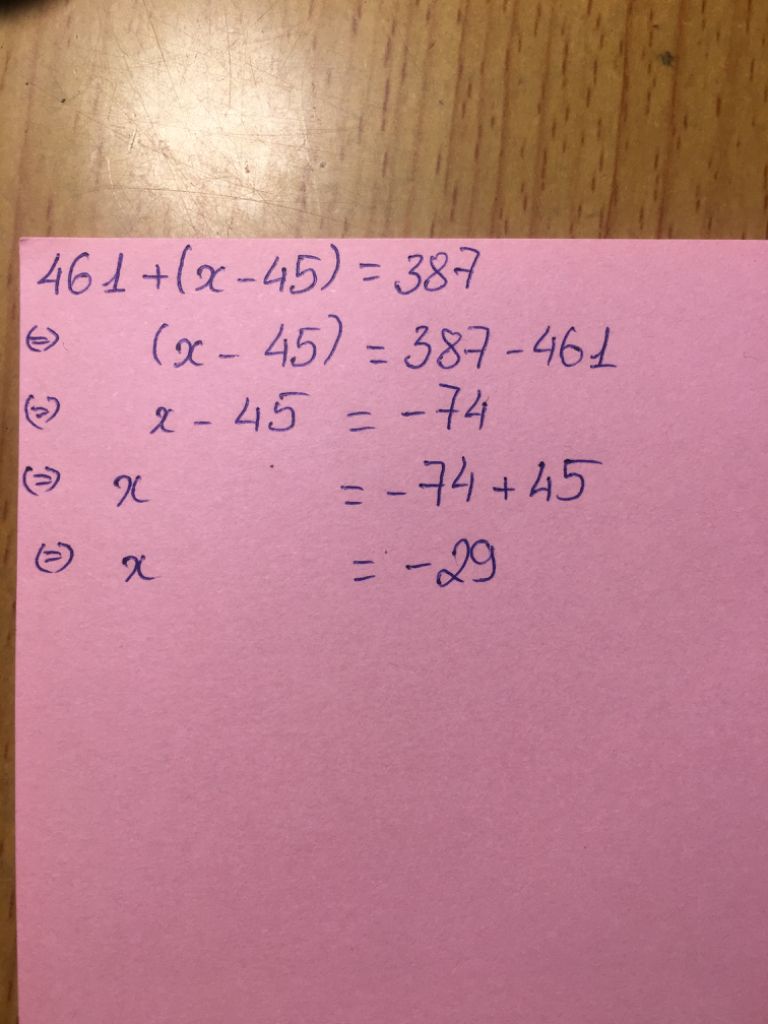 461 + (x - 45) = 387
⇔ (x - 45) = 387 - 461
⇔ x - 45 = -74
⇔ x = -74 + 45
⇔ x = -29